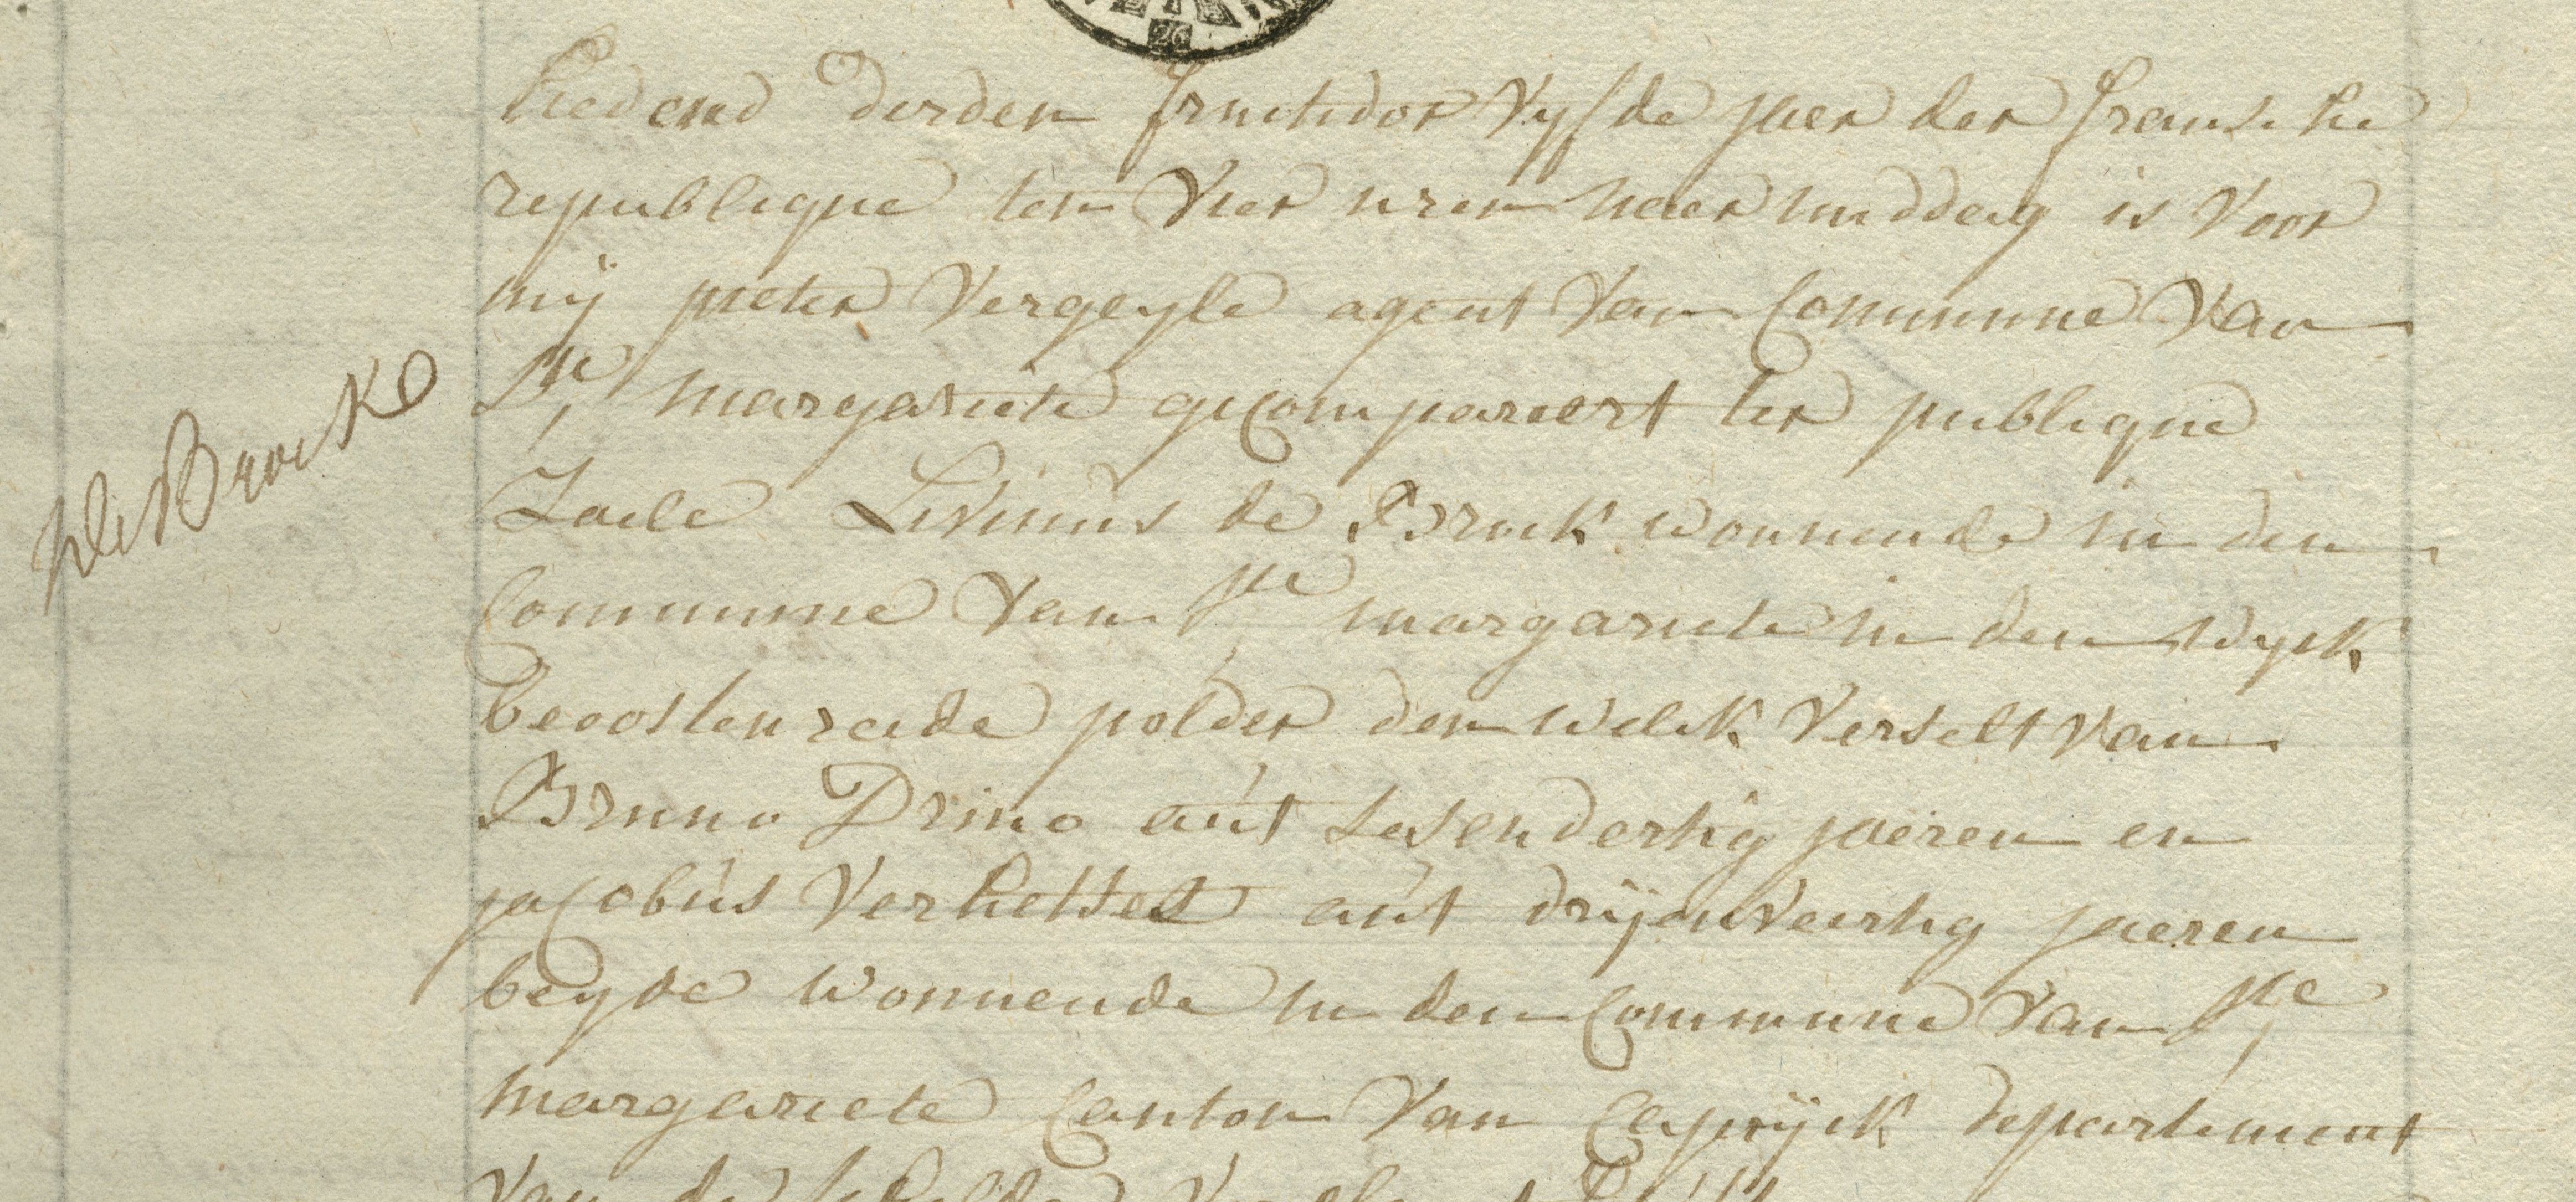 De Brouke
hedend derden fructidor vyfde jaer der fransche
republique ten vier uren naer middag is voor
mij pieter Vergeyle agent van Commune van
Ste margariete gecompareert ter publique
Zaele Livinus de Brouk wonnende in den
Commune van Ste margariete in den wyck
beoosten reede polder den welck verselt van
Bruno Drino aut sesendertig jaeren en
jacobus Verhettel aut drijenveertig jaeren
beyde wonnende in den Commune van Ste
margariete Canton van Caprijck departement
van de schelde